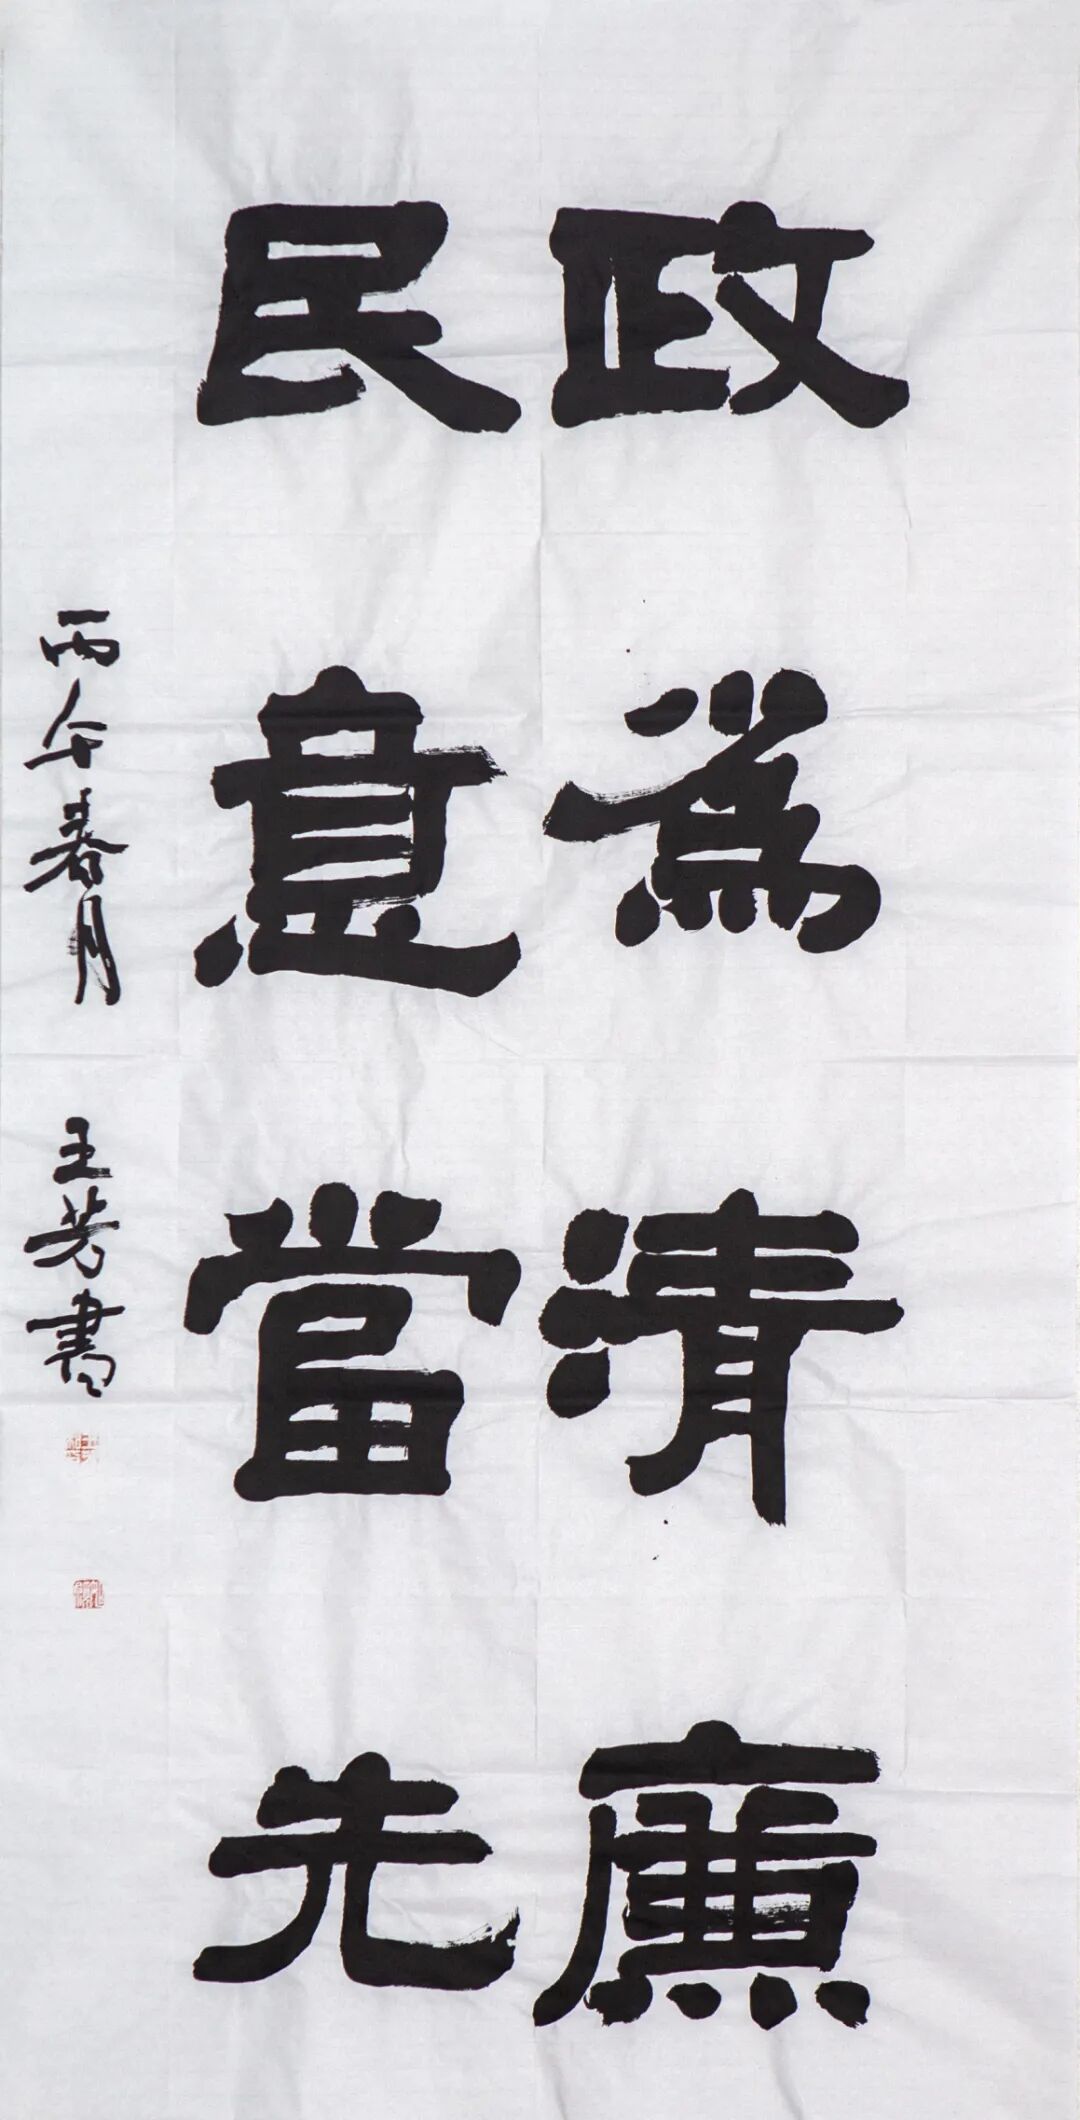 政為清廉
民意當先
丙午春月 王芳書